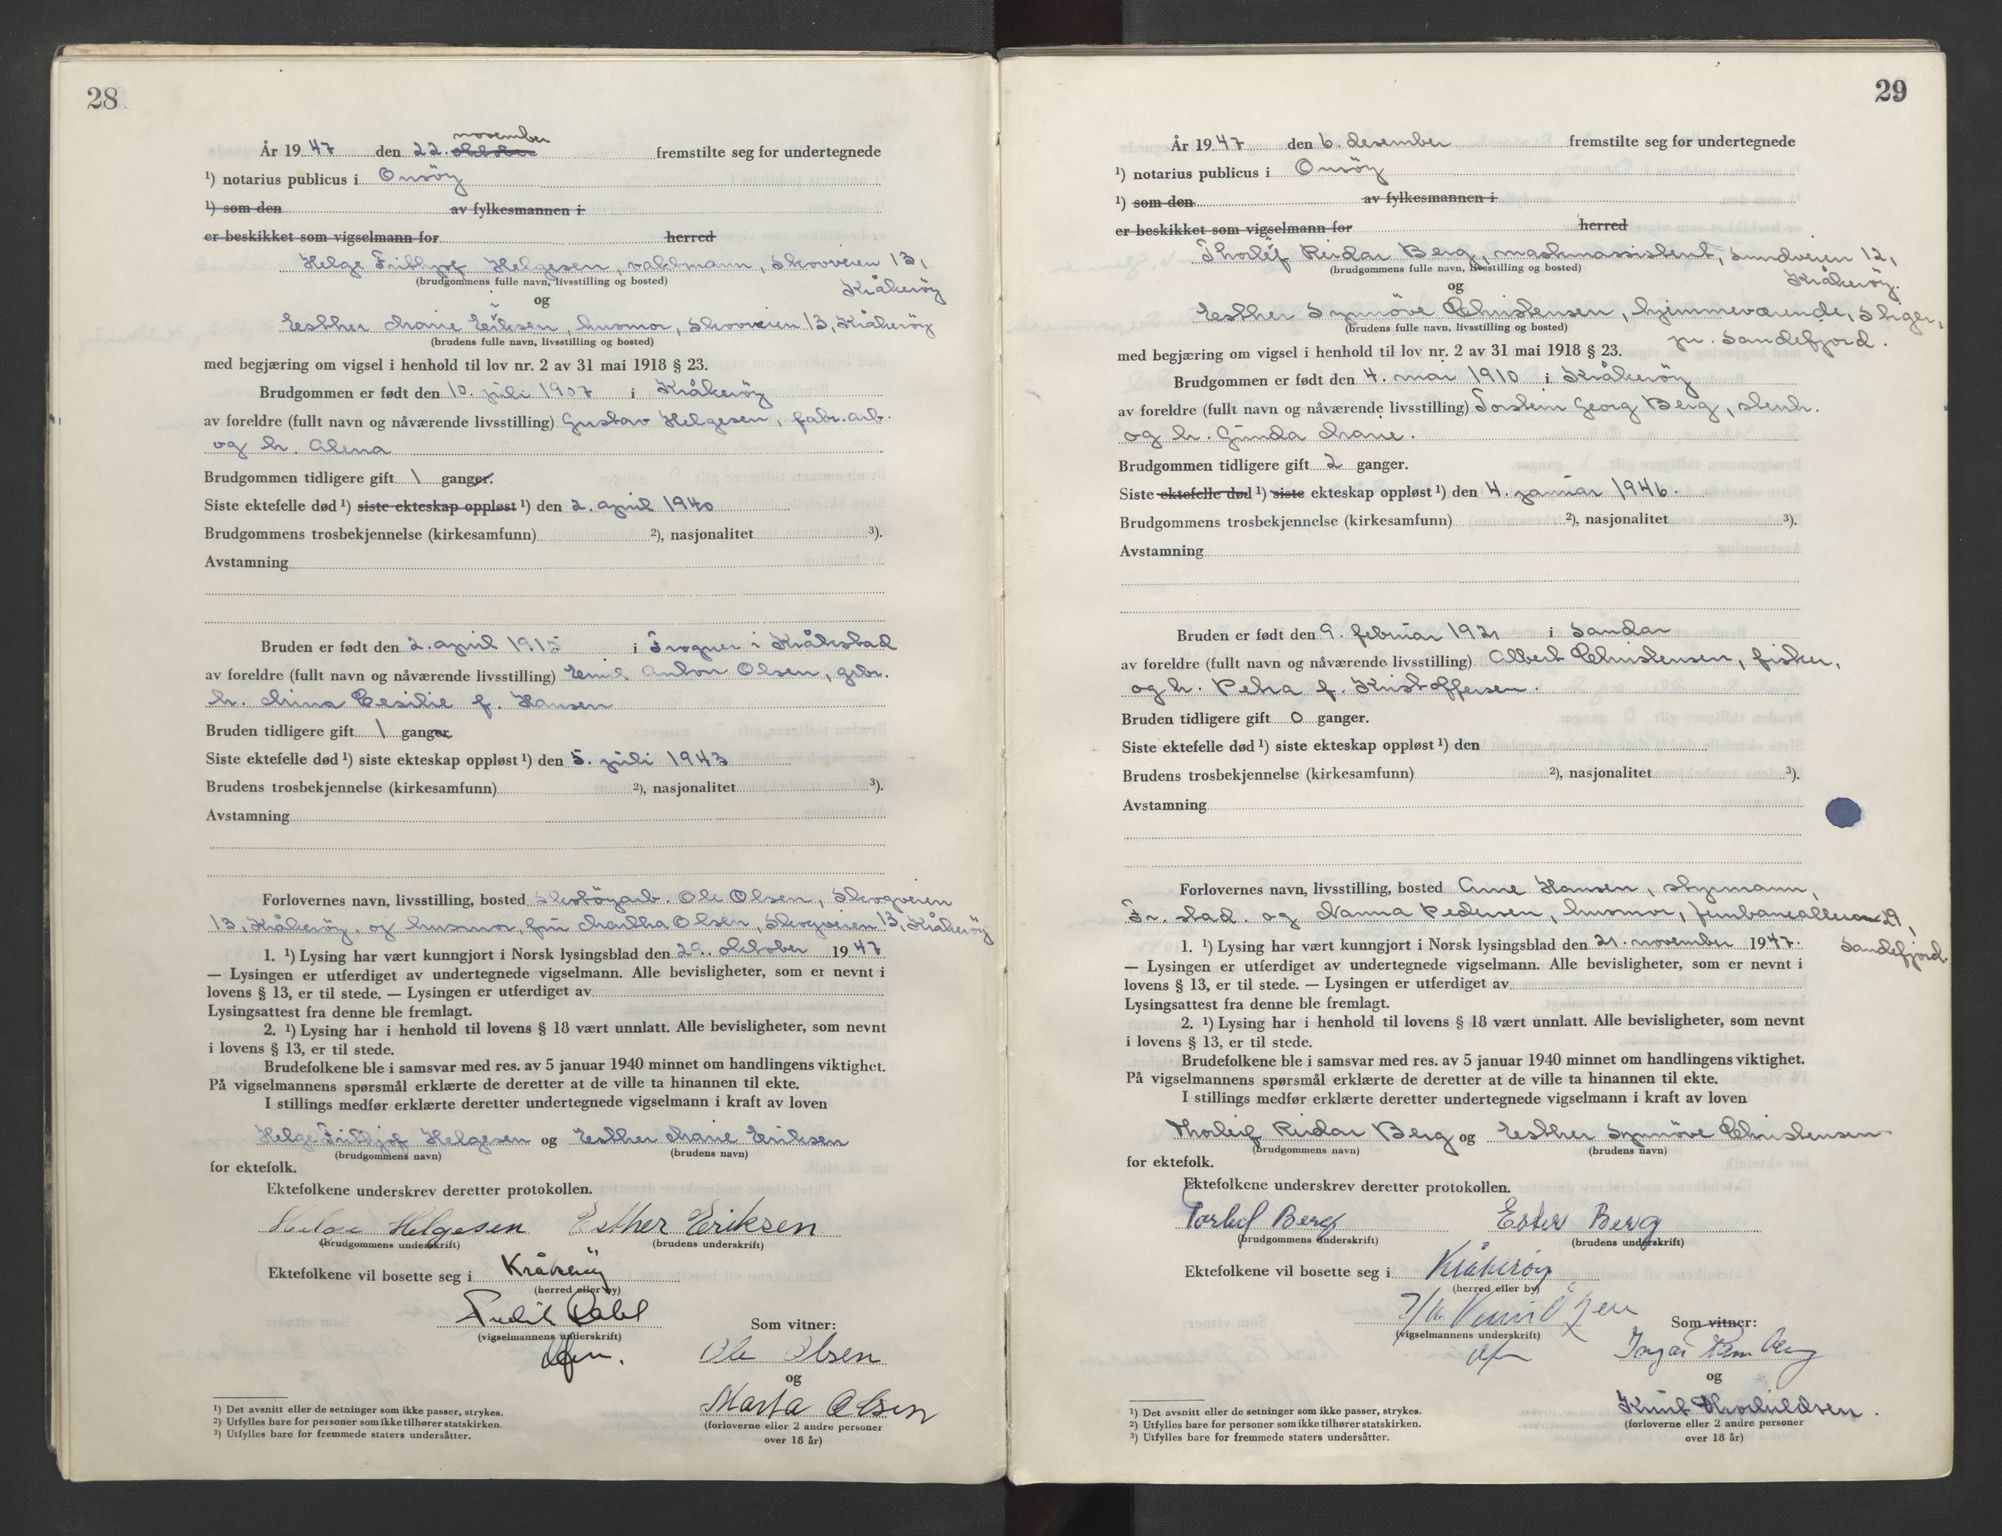 28
november
År 1947 den 22. oktober fremstilte seg for undertegnede
¹) notarius publicus i Onsöy
¹) som den av fylkesmannen i
er beskikket som vigselmann for herred
Helge Frithjof Helgesen, valsmann, Skovveien 13,
(brudgommens fulle navn, livsstilling og bosted)
Kråkeröy
og
Esther Marie Eriksen, husmor, Skovveien 13, Kråkeröy
(brudens fulle navn, livsstilling og bosted)
med begjæring om vigsel i henhold til lov nr. 2 av 31 mai 1918 § 23.
Brudgommen er født den 10. juli 1907 i Kråkeröy
av foreldre (fullt navn og nåværende livsstilling) Gustav Helgesen, fabr.arb.
og h. Alena
Brudgommen tidligere gift 1 ganger.
Siste ektefelle død ¹) siste ekteskap oppløst ¹) den 2. april 1940
Brudgommens trosbekjennelse (kirkesamfunn) ²), nasjonalitet ³).
Avstamning
Bruden er født den 2. april 1915 i Frogner i Kråkstad
av foreldre (fullt navn og nåværende livsstilling) Emil Anton Olsen, grbr.
h. Mina Cesilie f. Hansen
Bruden tidligere gift 1 ganger
Siste ektefelle død ¹) siste ekteskap oppløst ¹) den 5. juli 1943
Brudens trosbekjennelse (kirkesamfunn) ²), nasjonalitet ³).
Avstamning
Forlovernes navn, livsstilling, bosted Skotöyarb. Ole Olsen, Skogveien
13, Kråkeröy, og husmor, fru Martha Olsen, Skogveien 13, Kråkeröy
1. ¹) Lysing har vært kunngjort i Norsk lysingsblad den 29. oktober 1947
— Lysingen er utferdiget av undertegnede vigselmann. Alle bevisligheter, som er nevnt i
lovens § 13, er til stede. — Lysingen er utferdiget av
Lysingsattest fra denne ble fremlagt.
2. ¹) Lysing har i henhold til lovens § 18 vært unnlatt. Alle bevisligheter, som nevnt
i lovens § 13, er til stede.
Brudefolkene ble i samsvar med res. av 5 januar 1940 minnet om handlingens viktighet.
På vigselmannens spørsmål erklærte de deretter at de ville ta hinannen til ekte.
I stillings medfør erklærte deretter undertegnede vigselmann i kraft av loven
Helge Frithjof Helgesen og Esther Marie Eriksen
(brudgommens navn) (brudens navn)
for ektefolk.
Ektefolkene underskrev deretter protokollen.
Helge Helgesen Esther Eriksen
(brudgommens underskrift) (brudens underskrift)
Ektefolkene vil bosette seg i Kråkeröy
(herred eller by)
(vigselmannens underskrift)
Som vitner:
Ole Olsen
og
Marta Olsen
(forloverne eller 2 andre personer
over 18 år)
¹) Det avsnitt eller de setninger som ikke passer, strykes.
²) Utfylles bare for personer som ikke tilhører statskirken.
³) Utfylles bare for fremmede staters undersåtter.
29
År 1947 den 6. desember fremstilte seg for undertegnede
¹) notarius publicus i Onsöy
¹) som den av fylkesmannen i
er beskikket som vigselmann for herred
Thorleif Reidar Berg, maskinassistent, Sundveien 12,
(brudgommens fulle navn, livsstilling og bosted)
Kråkeröy.
og
Esther Synnöve Christensen, hjemmeværende, Skger,
(brudens fulle navn, livsstilling og bosted)
pr. Sandefjord.
med begjæring om vigsel i henhold til lov nr. 2 av 31 mai 1918 § 23.
Brudgommen er født den 4. mai 1910 i Kråkeröy
av foreldre (fullt navn og nåværende livsstilling) Torstein Georg Berg, stenh.
og h. Gunda Marie.
Brudgommen tidligere gift 2 ganger.
Siste ektefelle død ¹) siste ekteskap oppløst ¹) den 4. januar 1946.
Brudgommens trosbekjennelse (kirkesamfunn) ²), nasjonalitet ³).
Avstamning
Bruden er født den 9. februar 1921 i Sandar
av foreldre (fullt navn og nåværende livsstilling) Albert Christensen, fisker,
og h. Petra f. Kristoffersen.
Bruden tidligere gift 0 ganger.
Siste ektefelle død ¹) siste ekteskap oppløst ¹) den
Brudens trosbekjennelse (kirkesamfunn) ²), nasjonalitet ³).
Avstamning
Forlovernes navn, livsstilling, bosted Arne Hansen, styrmann,
Fr.stad. og Nanna Pedersen, husmor, Jernbanealleen 29,
Sandefjord.
1. ¹) Lysing har vært kunngjort i Norsk lysingsblad den 21. november 1947.
— Lysingen er utferdiget av undertegnede vigselmann. Alle bevisligheter, som er nevnt i
lovens § 13, er til stede. — Lysingen er utferdiget av
Lysingsattest fra denne ble fremlagt.
2. ¹) Lysing har i henhold til lovens § 18 vært unnlatt. Alle bevisligheter, som nevnt
i lovens § 13, er til stede.
Brudefolkene ble i samsvar med res. av 5 januar 1940 minnet om handlingens viktighet.
På vigselmannens spørsmål erklærte de deretter at de ville ta hinannen til ekte.
I stillings medfør erklærte deretter undertegnede vigselmann i kraft av loven
Thorleif Reidar Berg og Esther Synnöve Christensen
(brudgommens navn) (brudens navn)
for ektefolk.
Ektefolkene underskrev deretter protokollen.
Torleif Berg Ester Berg
(brudgommens underskrift) (brudens underskrift)
Ektefolkene vil bosette seg i Kråkeröy
(herred eller by)
(vigselmannens underskrift)
Som vitner:
og
Knut
(forloverne eller 2 andre personer
over 18 år)
¹) Det avsnitt eller de setninger som ikke passer, strykes.
²) Utfylles bare for personer som ikke tilhører statskirken.
³) Utfylles bare for fremmede staters undersåtter.